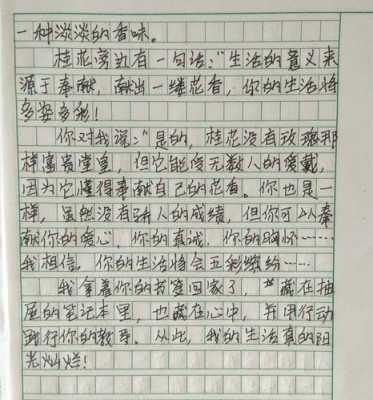 一种淡淡的香味。
桂花旁边有一句话："生活的意义来
源于奉献，献出一缕花香，你的生活将
多姿多彩！
你对我深："是的，桂花没有玫瑰那
样富贵堂皇，但它能受无数人的爱戴，
因为它懂得奉献自己的花香。你也是一
样，虽然没有骄人的成绩，但你可以奉
献你的爱心，你的真诚，你的胸怀……
我相信，你的生活将会五彩缤纷……
我拿着你的书签回家了，藏在抽
屉的笔记本里，也藏在心中，并用行动
践行你的教导。从此，我的生活真的阳
光灿烂！